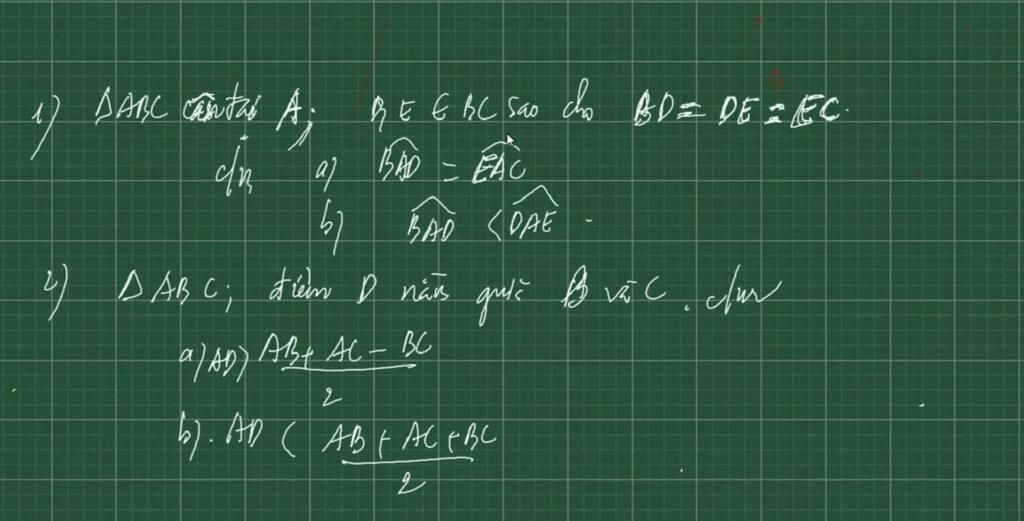 1) ΔABC cân tại A; D, E ∈ BC sao cho BD = DE = EC.
c/m a) \widehat{BAD} = \widehat{EAC}
b) \widehat{BAD} < \widehat{DAE}.
2) ΔABC; điểm D nằm giữa B và C. c/m
a) AD > \frac{AB + AC - BC}{2}
b). AD < \frac{AB + AC + BC}{2}